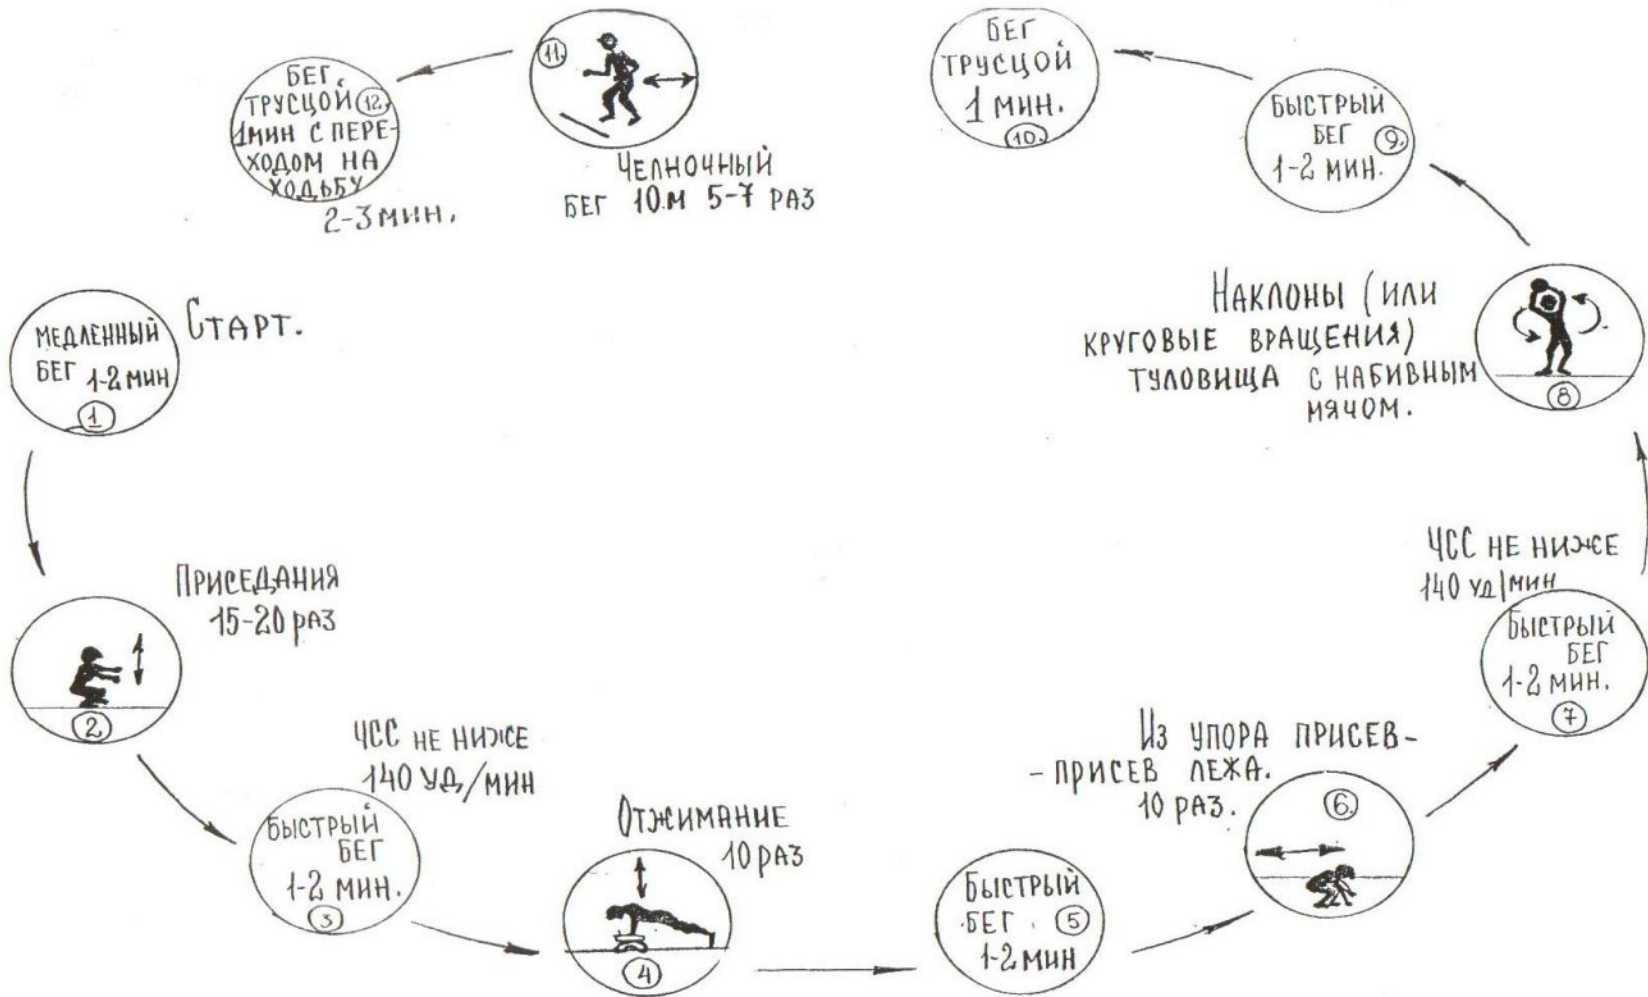 СТАРТ.
МЕДЛЕННЫЙ
БЕГ 1-2 МИН
1
ПРИСЕДАНИЯ
15-20 РАЗ
2
ЧСС НЕ НИЖЕ
140 УД/МИН
БЫСТРЫЙ
БЕГ
1-2 МИН.
3
ОТЖИМАНИЕ
10 РАЗ
4
БЫСТРЫЙ
БЕГ 5
1-2 МИН
ИЗ УПОРА ПРИСЕВ-
-ПРИСЕВ ЛЕЖА.
10 РАЗ.
6.
ЧСС НЕ НИЖЕ
140 УД/МИН
БЫСТРЫЙ
БЕГ
1-2 МИН.
7
НАКЛОНЫ (ИЛИ
КРУГОВЫЕ ВРАЩЕНИЯ)
ТУЛОВИЩА С НАБИВНЫМ
МЯЧОМ.
8
БЫСТРЫЙ
БЕГ 9.
1-2 МИН.
БЕГ
ТРУСЦОЙ
1 МИН.
10.
11.
ЧЕЛНОЧНЫЙ
БЕГ 10.М 5-7 РАЗ
БЕГ
ТРУСЦОЙ 12.
1МИН С ПЕРЕ-
ХОДОМ НА
ХОДЬБУ
2-3 МИН.